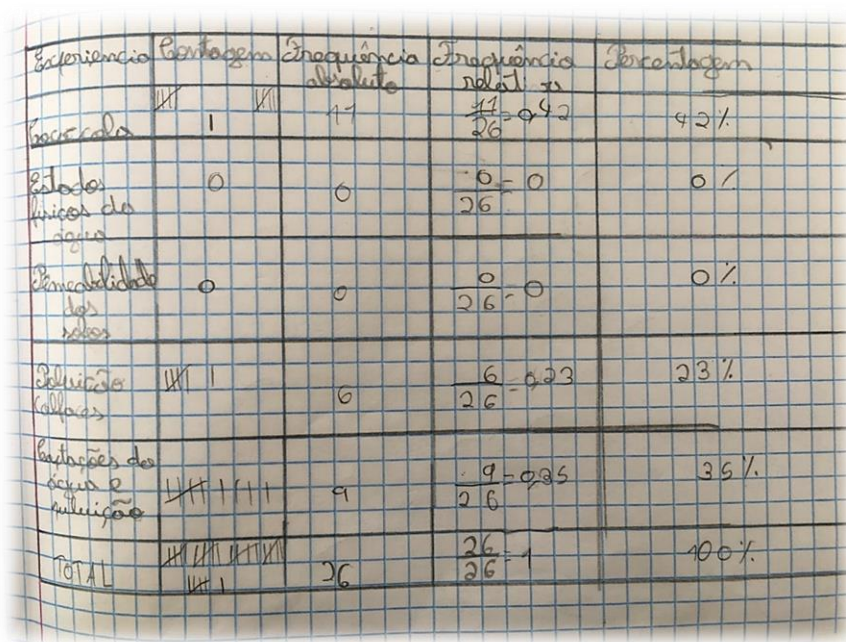 Experiencia Contagem Frequência absoluta Frequência relat
Coca cola 1 11 11/26 = 0,42 42%
Estados físicos da água 0 0 0/26 = 0 0%
Permeabilidade dos solos 0 0 0/26 = 0 0%
Poluição (alfaces 6 6/26 = 0,23 23%
Captações da água e poluição 9 9/26 = 0,35 35%
TOTAL 26 26/26 = 1 100%
Percentagem